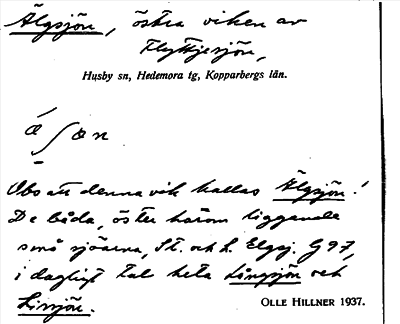 Älgsjön, östra viken av
Flyttjesjön,
Husby sn, Hedemora tg, Kopparbergs län.
Obs att denna vik kallas Älgsjön!
De båda, öster härom liggande
små sjöarna, St. och L. Elgsj. G 97,
i dagligt tal heta Långsjön och
Lissjön.
OLLE HILLNER 1937.